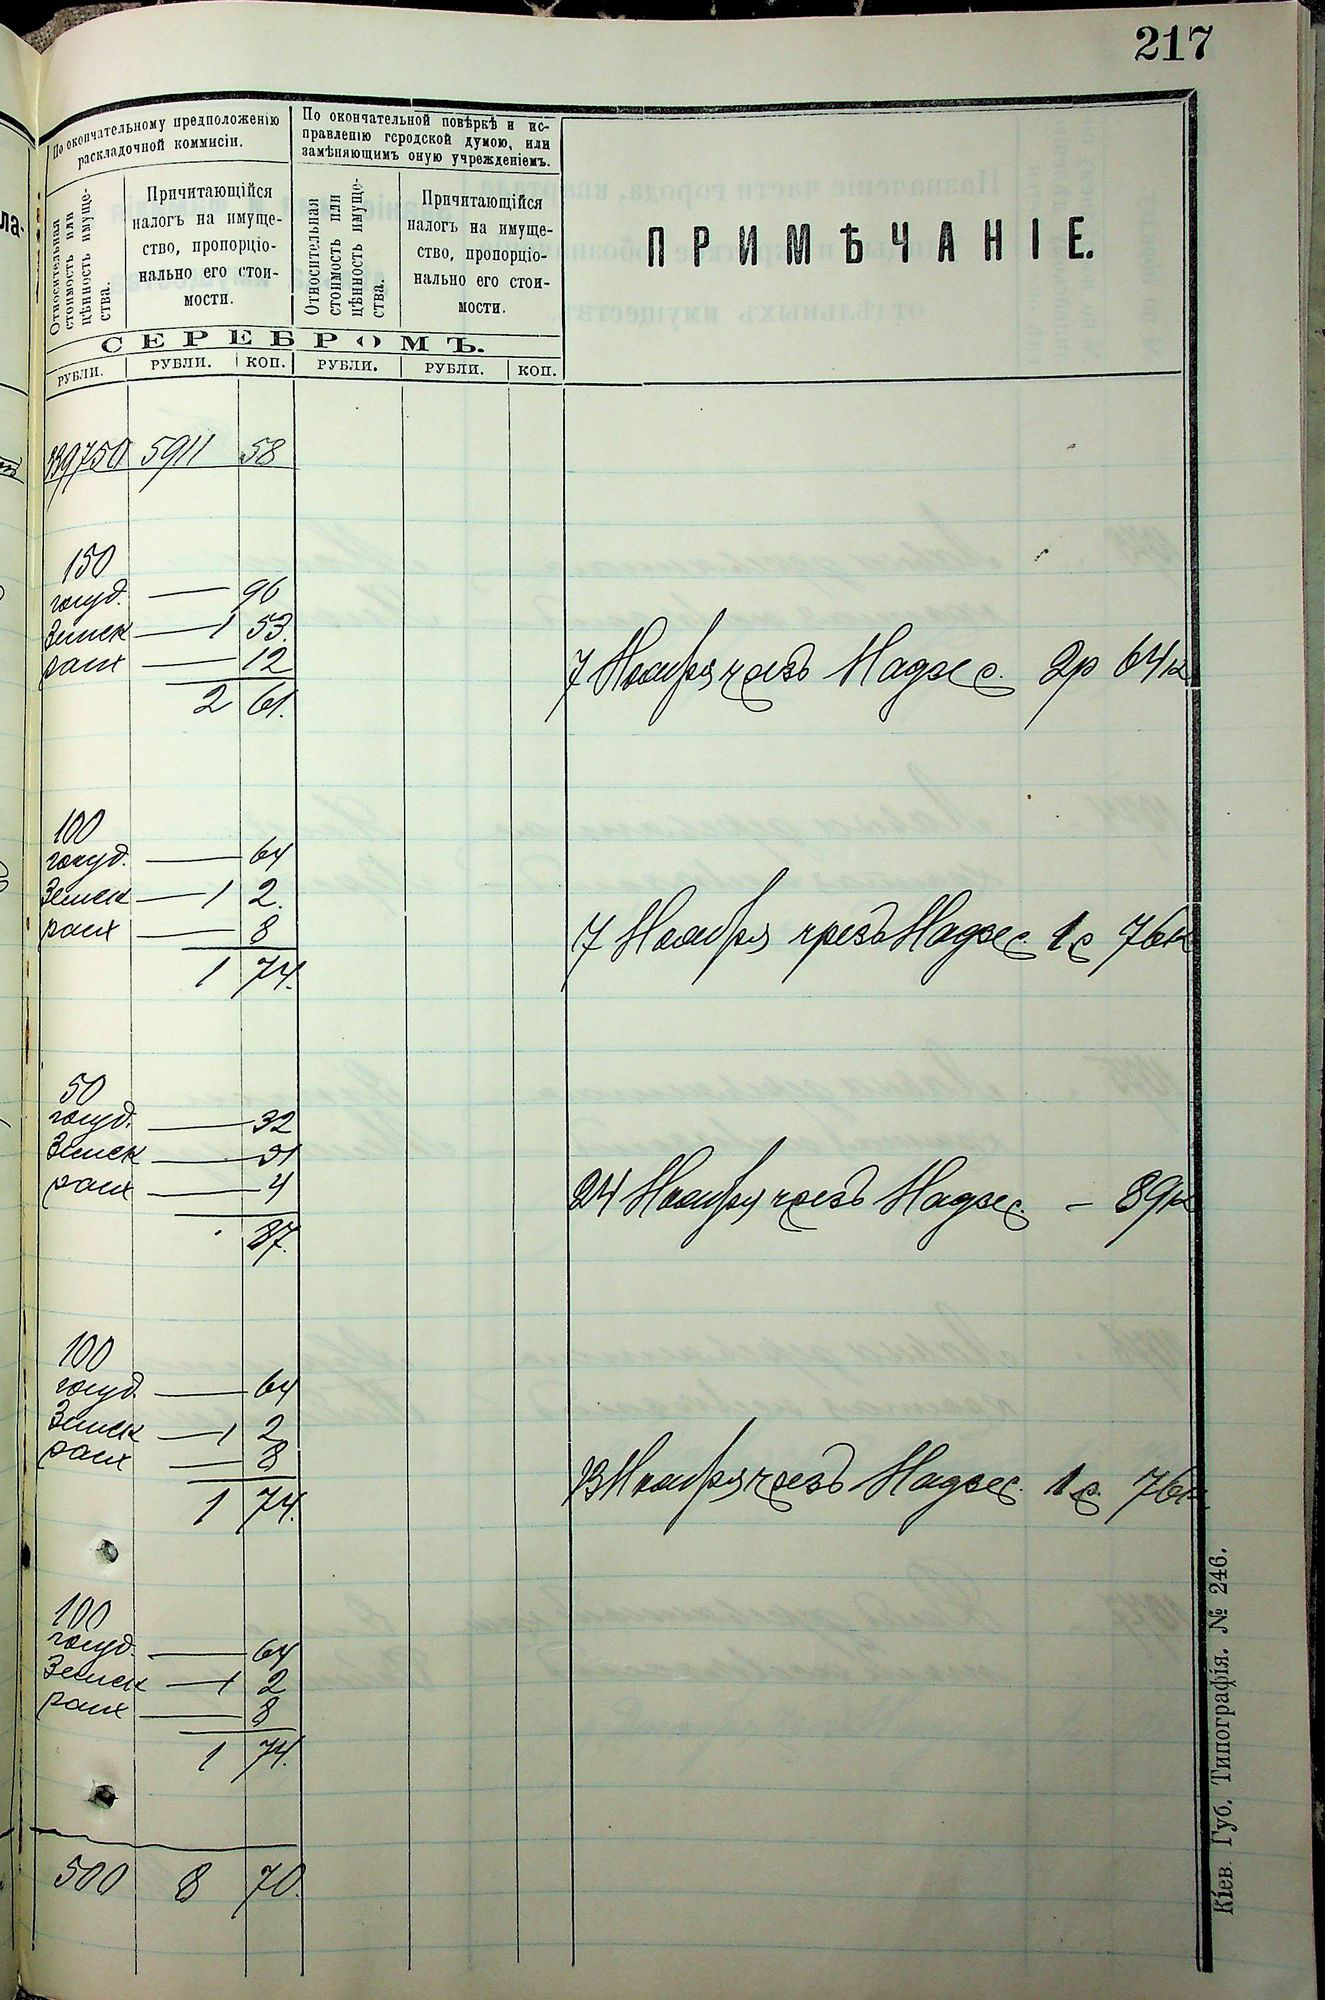 217
По окончательному предположенію
раскладочной коммисіи.
По окончательной повѣркѣ и ис-
правленію городской думою, или
замѣняющимъ оную учрежденіемъ.
Относительная
стоимость или
цѣнность имуще-
ства.
Причитающійся
налогъ на имуще-
ство, пропорціо-
нально его стои-
мости.
Относительная
стоимость или
цѣнность имуще-
ства.
Причитающійся
налогъ на имуще-
ство, пропорціо-
нально его стои-
мости.
ПРИМѢЧАНІЕ.
СЕРЕБРОМЪ.
РУБЛИ. РУБЛИ. КОП. РУБЛИ. РУБЛИ. КОП.
339750 5911 58
150
госуд. — 96
Земск — 1 53.
расх — 12
7 Ноября чрезъ Надзс. 2р 64к
2 61.
100
госуд. — 64
Земск — 1 2.
расх — 8
7 Ноября чрезъ Надзс. 1р 76к
1 74.
50
госуд. — 32
Земск — 51
расх — 4
24 Ноября чрезъ Надзс. — 89к
87.
100
госуд. — 64
Земск — 1 2
расх — 8
13 Ноября чрезъ Надзс. 1р. 76к
1 74.
100
госуд. — 64
Земск — 1 2
расх — 8
1 74.
500 8 70.
Кіев. Губ. Типографія. № 246.